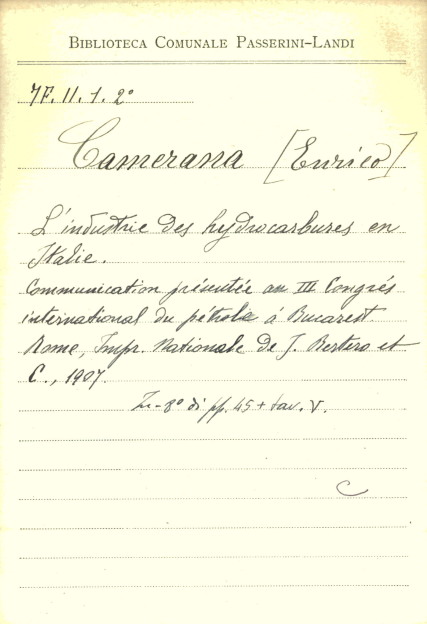 BIBLIOTECA COMUNALE PASSERINI-LANDI
7F. II. 1. 2°
Camerana [Enrico]
L'industrie des hydrocarbures en
Italie.
Communication présentée au III Congrés
international du pétrole à Bucarest
Rome, Impr. Nationale de J. Bertero et
C., 1907.
In-8° di pp. 45 + tav. V.
C